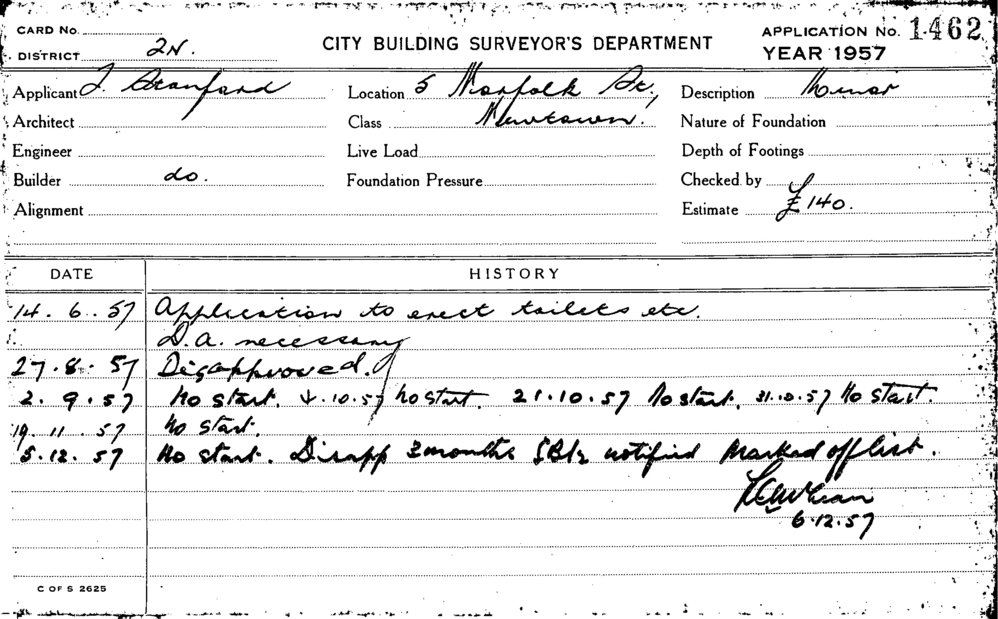 CARD No.
DISTRICT 2N.
CITY BUILDING SURVEYOR'S DEPARTMENT
APPLICATION No. 1462
YEAR 1957
Applicant J. Branford Location 5 Norfolk St., Description Minor
Architect Class Newtown. Nature of Foundation
Engineer Live Load Depth of Footings
Builder do. Foundation Pressure Checked by
Alignment Estimate £140.
DATE HISTORY
14. 6. 57 Application to erect toilets etc.
D.A. necessary
27.8.57 Disapproved.
2.9.57 No start. 4.10.57 No start. 21.10.57 No start. 31.10.57 No start.
19.11.57 No start.
5.12.57 No start. Disapp 3 months notified Marked off list.
6.12.57
C OF S 2625